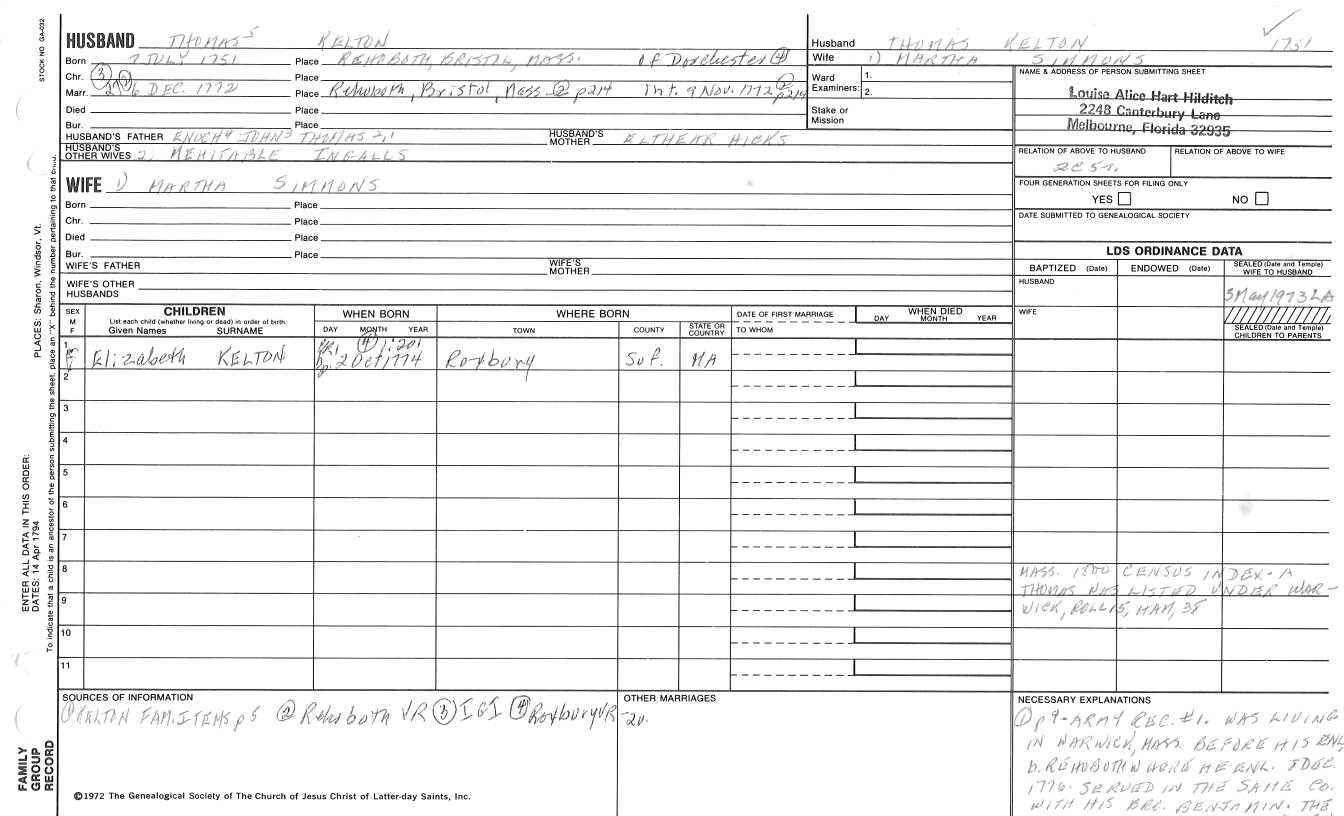 STOCK NO. GA-032
HUSBAND THOMAS 5 KELTON
Born 7 JULY 1751 Place REHOBOTH, BRISTOL, MASS. of Dorchester ④
Chr. Place
Marr. 6 DEC. 1772 Place Rehoboth, Bristol, Mass ② p214 Int. 9 Nov. 1772 p214
Died Place
Bur. Place
HUSBAND'S FATHER ENOCH 4 JOHN 3 THOMAS 2,1 HUSBAND'S MOTHER ELTHEAR HICKS
HUSBAND'S OTHER WIVES 2, MEHITABLE INGALLS
WIFE 1) MARTHA SIMMONS
Born Place
Chr. Place
Died Place
Bur. Place
WIFE'S FATHER WIFE'S MOTHER
WIFE'S OTHER HUSBANDS
Husband THOMAS KELTON 1751
Wife 1) MARTHA SIMMONS
Ward Examiners: 1.
2.
Stake or Mission
NAME & ADDRESS OF PERSON SUBMITTING SHEET
Louisa Alice Hart Hilditch
2248 Canterbury Lane
Melbourne, Florida 32935
RELATION OF ABOVE TO HUSBAND RELATION OF ABOVE TO WIFE
FOUR GENERATION SHEETS FOR FILING ONLY
YES NO
DATE SUBMITTED TO GENEALOGICAL SOCIETY
LDS ORDINANCE DATA
BAPTIZED (Date) ENDOWED (Date) SEALED (Date and Temple) WIFE TO HUSBAND
HUSBAND
3 May 1973 LA
WIFE
SEALED (Date and Temple) CHILDREN TO PARENTS
SEX M F CHILDREN WHEN BORN WHERE BORN DATE OF FIRST MARRIAGE WHEN DIED
List each child (whether living or dead) in order of birth
Given Names SURNAME DAY MONTH YEAR TOWN COUNTY STATE OR COUNTRY TO WHOM DAY MONTH YEAR
④ 1:201
1 F Elizabeth KELTON 2 Oct 1774 Roxbury Suf. MA
2
3
4
5
6
7
8
9
10
11
MASS. 1800 CENSUS INDEX - A
THOMAS WAS LISTED UNDER WAR-
WICK, ROLL 15, HAM, 38
SOURCES OF INFORMATION
① KELTON FAM. ITEMS p5 ② Rehoboth VR ③ IGI ④ Roxbury VR
OTHER MARRIAGES
NECESSARY EXPLANATIONS
① p9 - ARMY REC. #1. WAS LIVING
IN WARWICK, MASS. BEFORE HIS ENL,
b. REHOBOTH WHERE HE ENL. DEC.
1776. SERVED IN THE SAME CO.
WITH HIS BRO. BENJAMIN. THE
©1972 The Genealogical Society of The Church of Jesus Christ of Latter-day Saints, Inc.
PLACES: Sharon, Windsor, Vt.
ENTER ALL DATA IN THIS ORDER:
DATES: 14 Apr 1794
To indicate that a child is an ancestor of the person submitting the sheet, place an "X" behind the number pertaining to that child.
FAMILY
GROUP
RECORD